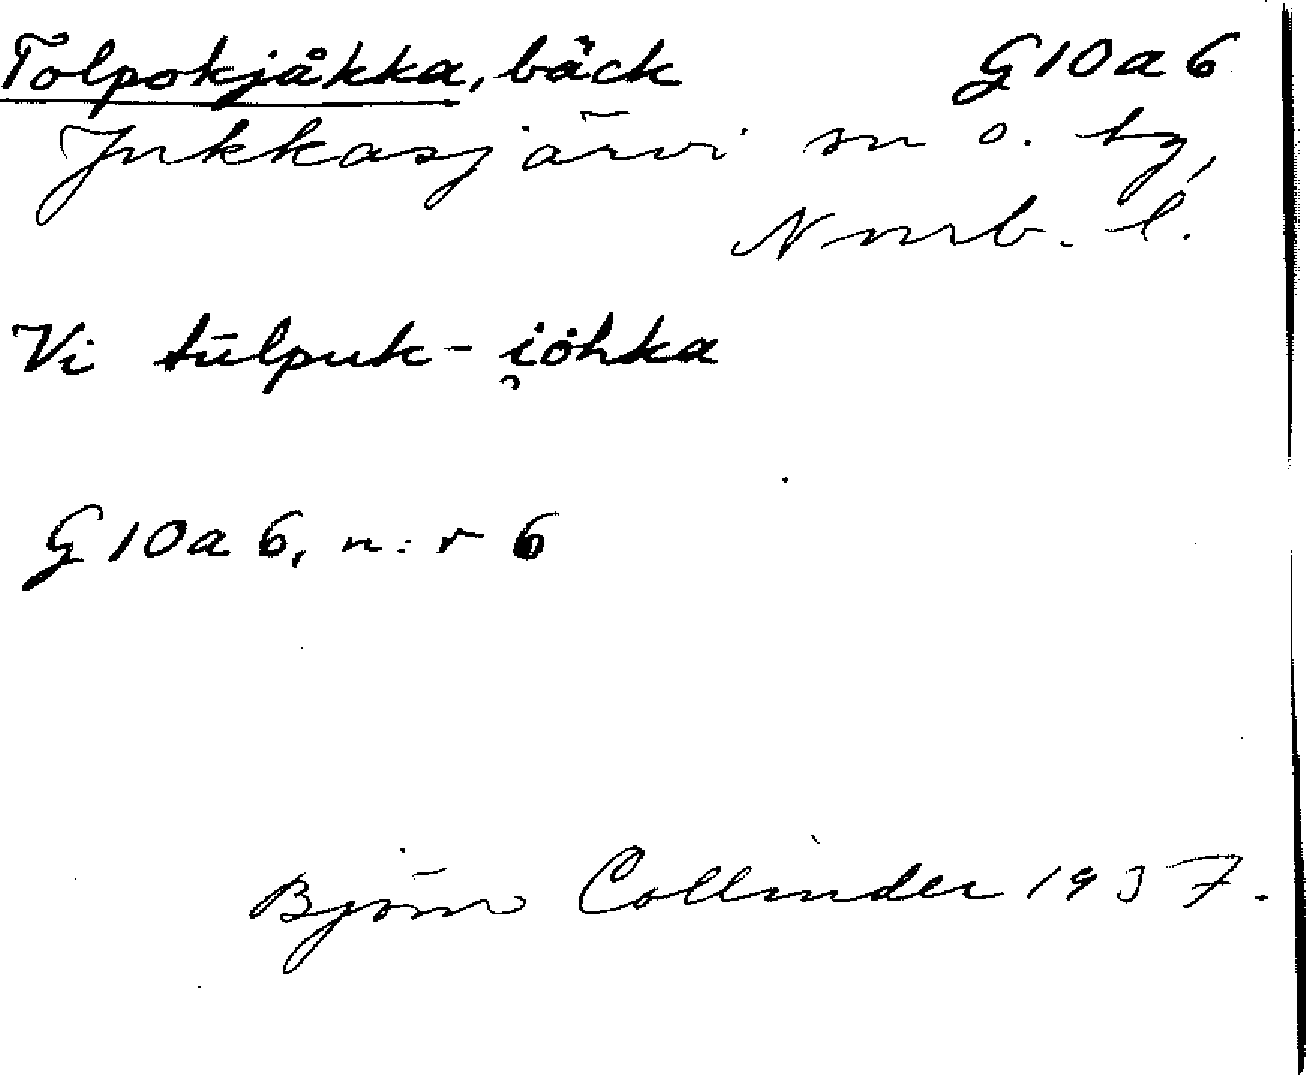 Tolpokjåkka, bäck G10a6
Jukkasjärvi sn o. by,
Nnrb. l.
Vi tūlpuk-i̯ȯhka
G10a6, n:r 6
Björn Collinder 1937.